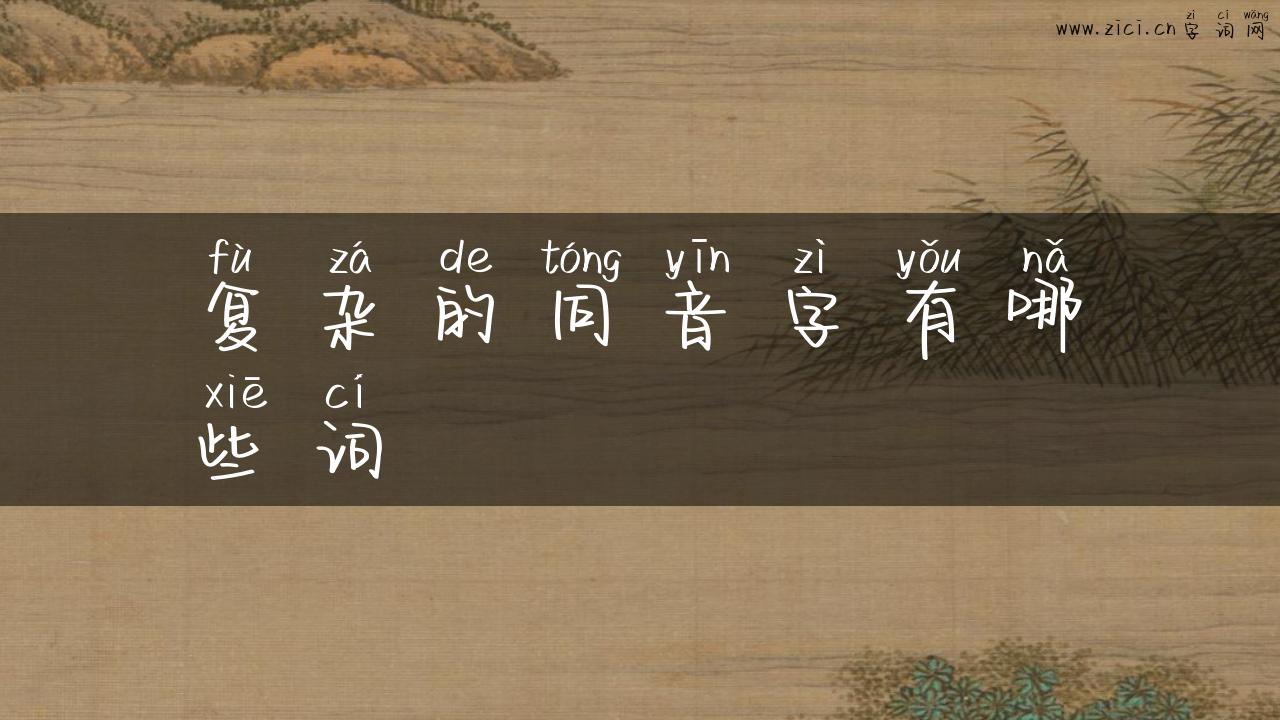 zì cí wǎng
www.zici.cn 字词网
fù zá de tóng yīn zì yǒu nǎ
复杂的同音字有哪
xiē cí
些词